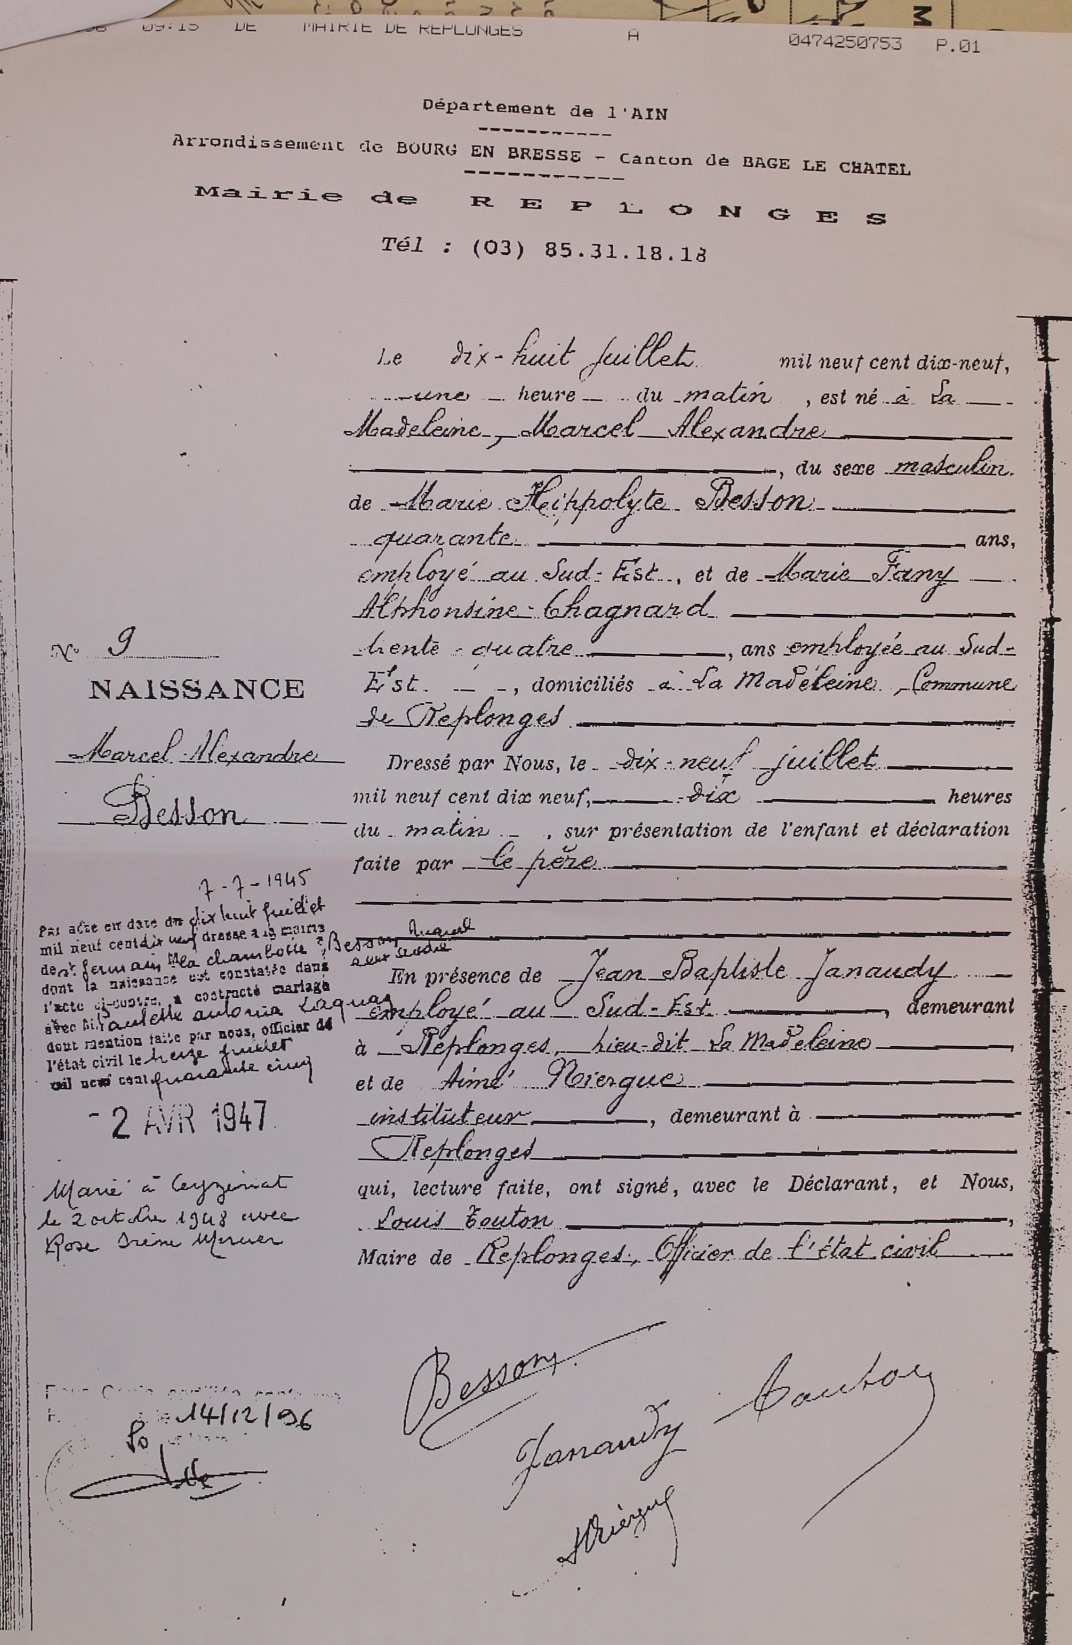 09:15 DE MAIRIE DE REPLONGES A 0474250753 P.01
Département de l'AIN
Arrondissement de BOURG EN BRESSE - Canton de BAGE LE CHATEL
Mairie de REPLONGES
Tél : (03) 85.31.18.18
Le dix-huit juillet mil neuf cent dix-neuf,
une heure du matin, est né à La
Madeleine, Marcel Alexandre
, du sexe masculin
de Marie Hippolyte Besson
quarante ans,
employé au Sud-Est, et de Marie Fany
Alphonsine Chagnard
trente-quatre, ans employée au Sud-
Est, domiciliés à La Madeleine, Commune
de Replonges
Dressé par Nous, le dix-neuf juillet
mil neuf cent dix neuf, dix heures
du matin, sur présentation de l'enfant et déclaration
faite par le père
En présence de Jean Baptiste Janaudy
employé au Sud-Est, demeurant
à Replonges, lieu-dit La Madeleine
et de Aimé Niergue
instituteur, demeurant à
Replonges
qui, lecture faite, ont signé, avec le Déclarant, et Nous,
Louis Touton,
Maire de Replonges, Officier de l'état civil
N° 9
NAISSANCE
Marcel Alexandre
Besson
7-7-1945
Par acte en date du dix huit juillet
mil neuf cent dix neuf dressé à la mairie
de St Germain la chambotte, Besson
dont la naissance est constatée dans
l'acte ci-contre, a contracté mariage
avec M Paulette antonia
dont mention faite par nous, officier de
l'état civil le treize juillet
mil neuf cent quarante cinq
- 2 AVR 1947
Marié à Ceyzériat
le 2 octobre 1948 avec
Rose Irène Mercier
14/12/96
Besson
Janaudy
Touton
Niergue